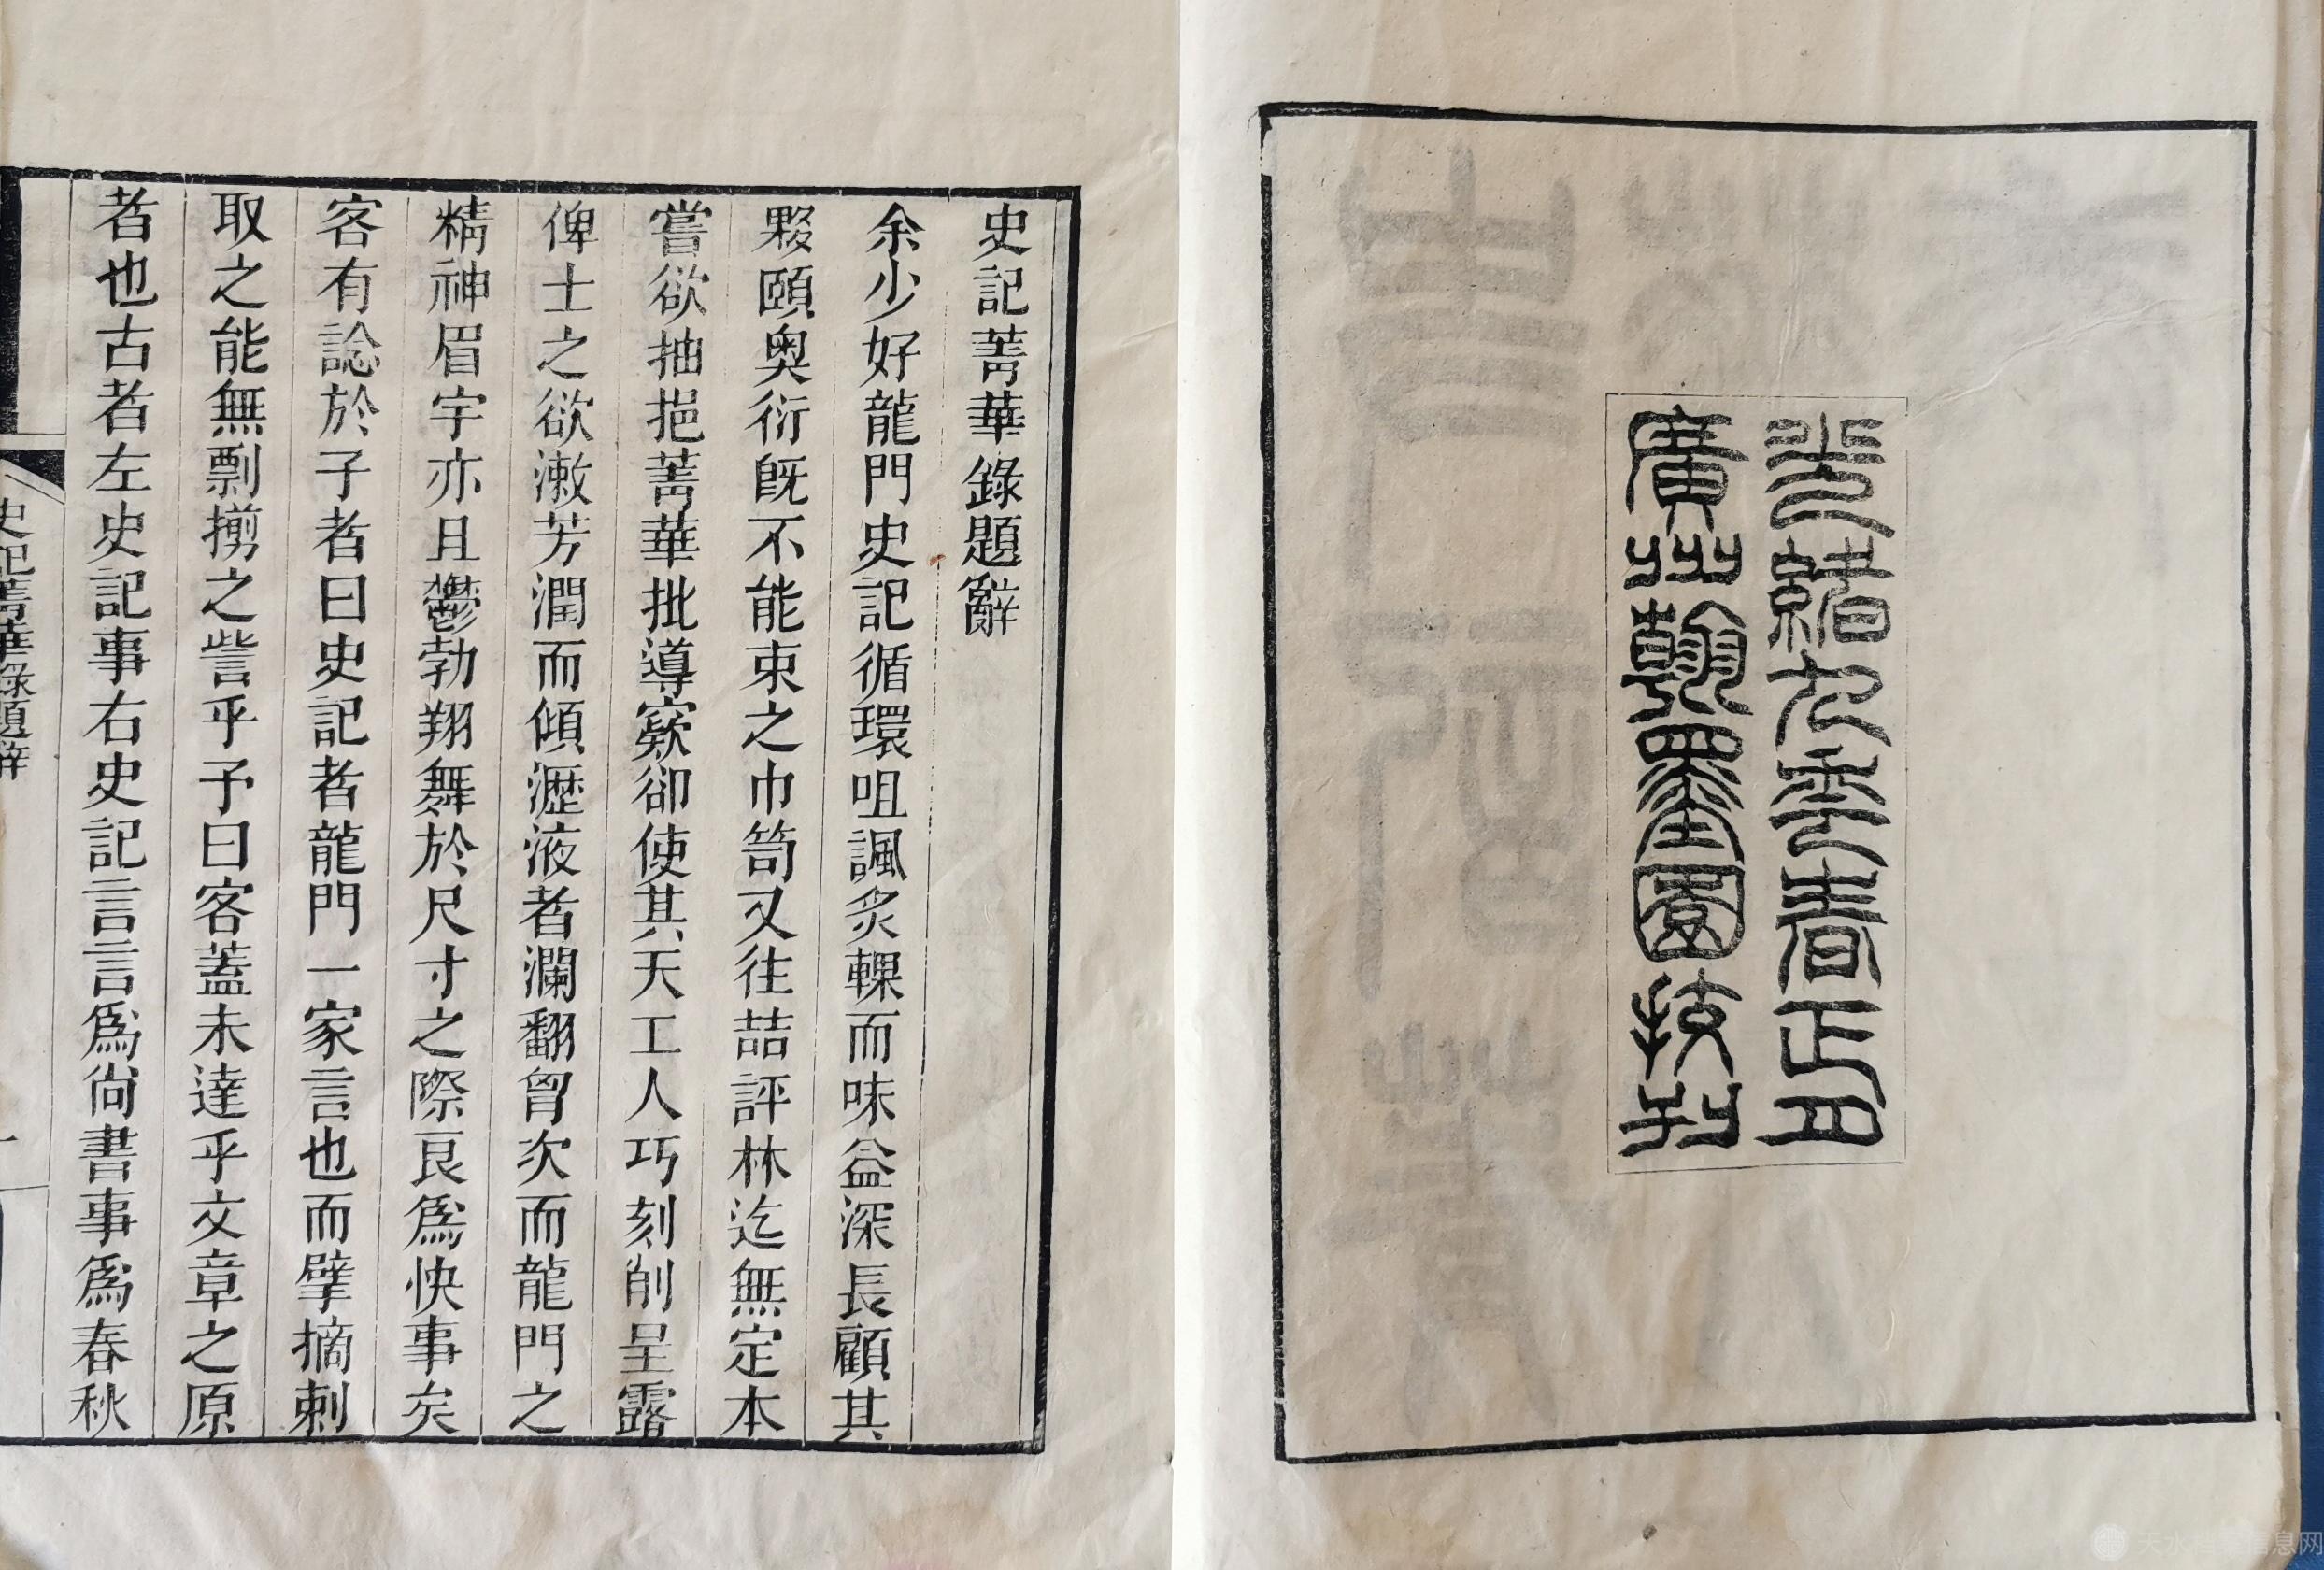 光緒九年春正月
廣州翰墨園校刊
史記菁華錄題辭
余少好龍門史記循環咀諷炙輠而味益深長顧其
夥頤奧衍旣不能束之巾笥又往喆評林迄無定本
嘗欲抽挹菁華批導窾卻使其天工人巧刻削呈露
俾士之欲漱芳潤而傾瀝液者瀾翻胷次而龍門之
精神眉宇亦且鬱勃翔舞於尺寸之際良爲快事矣
客有諗於予者曰史記者龍門一家言也而擘摘剌
取之能無剽搠之訾乎予曰客蓋未達乎文章之原
者也古者左史記事右史記言言爲尙書事爲春秋
史記菁華錄題辭
一